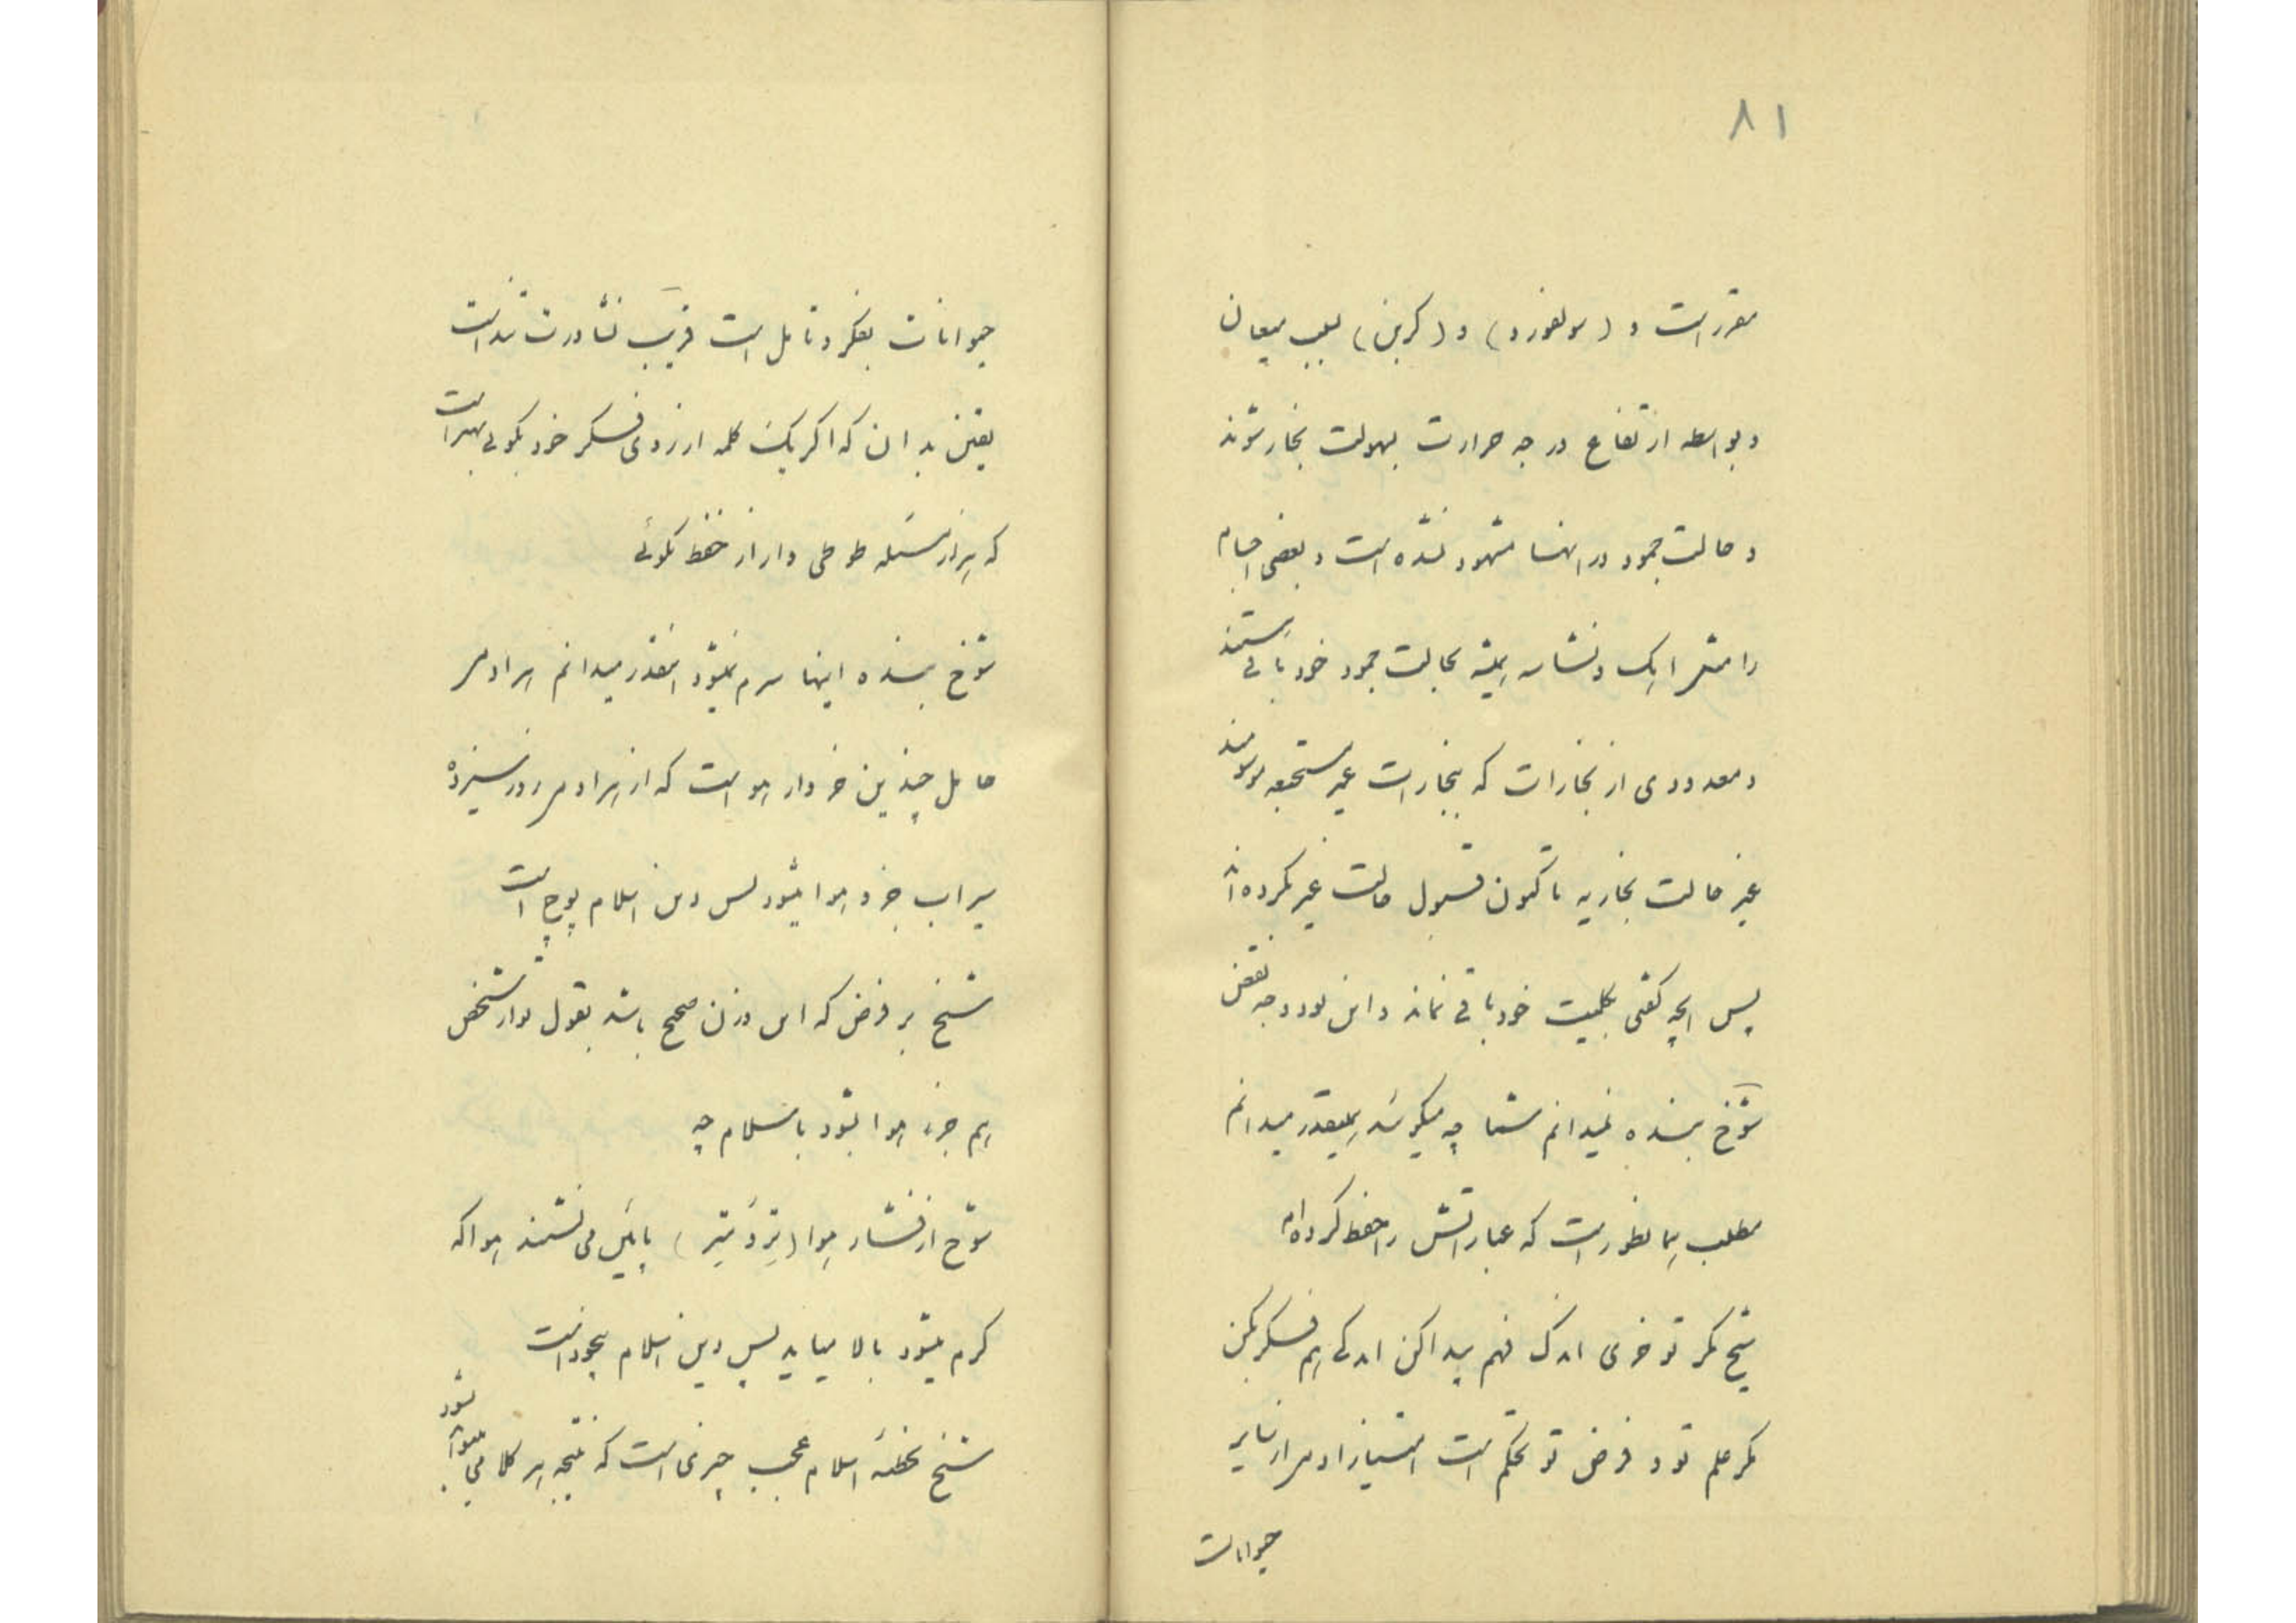 ۸۱
مقرر است و (سولفورد) و (کربن) بسبب میعان
و بواسطه ارتفاع درجه حرارت بسهولت بخار شوند
و حالت جمود در انها مشهود نشده است و بعضی اجسام
را مثل ایک و نشاسه همیشه بحالت جمود خود باقی هستند
و معدودی از بخارات که ببخارات غیر مستحیله موسومند
غیر حالت بخاریه تاکنون قبول حالت غیر نکرده‌اند
پس انچه کفتی بکلیت خود باقی نماند و این بود وجه نقض
شوخ بنده نمیدانم شما چه میکوئید همینقدر میدانم
مطلب همانطور است که عباراتش را حفظ کرده‌ام
شیخ مکر تو خری اندک فهم پیدا کن اندکی هم فکر بکن
مکر علم تو و فرض تو تحکم است امتیاز ادمی از سایر
حیوانات
حیوانات بفکر و تامل است فریب نشادرت نداست
یقین بدان که اکر یک کلمه از روی فکر خود بکوئی بهتر است
که هزار مسئله طوطی وار از حفظ بکوئی
شوخ بنده اینها سرم نمیشود اینقدر میدانم هر ادمی
حامل چندین خروار هوا است که از هر ادمی روز سیزده
سیر اب جزو هوا میشود پس دین اسلام پوچ است
شیخ بر فرض که این وزن صحیح باشد بقول تو از شخص
هم جزء هوا بشود با اسلام چه
شوخ از فشار هوا (ترمومتر) پایین می نشیند هوا که
کرم میشود بالا میاید پس دین اسلام بیخود است
شیخ تخطئه اسلام عجب چیزی است که نتیجه هر کلامی میتواند بشود